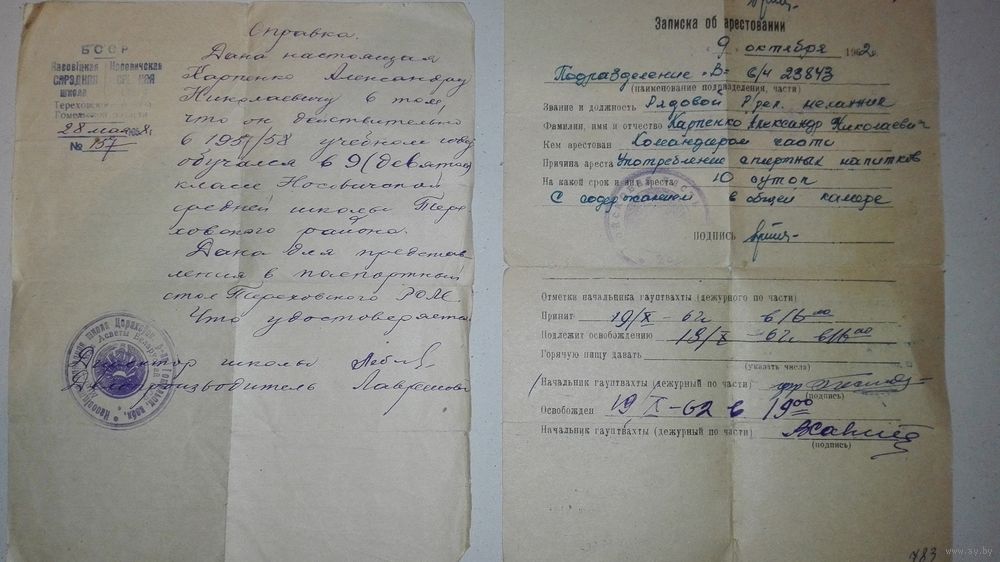 Справка.
БССР
Насовіцкая Носовичская
СЯРЭДНЯЯ
школа
Тереховского
Гомельской области
28 мая 1958 г.
№ 157
Дана настоящая
Карпенко Александру
Николаевичу в том,
что он действительно
в 1957/58 учебном году
обучался в 9 (девятом)
классе Носовичской
средней школы Тере
ховского района.
Дана для представ
ления в паспортный
стол Тереховского РОМ.
Что удостоверяется
Директор школы
Делопроизводитель
Записка об арестовании
9 октября 1962 г.
Подразделение "В" в/ч 23843
(наименование подразделения, части)
Звание и должность Рядовой механик
Фамилия, имя и отчество Карпенко Александр Николаевич
Кем арестован Командиром части
Причина ареста Употребление спиртных напитков
На какой срок и вид ареста 10 суток
С содержанием в общей камере
ПОДПИСЬ
Отметки начальника гауптвахты (дежурного по части)
Принят 19/X - 62г.
Подлежит освобождению 19/X - 62г.
Горячую пищу давать
(указать числа)
Начальник гауптвахты (дежурный по части)
(подпись)
Освобожден 19/X-62 в 19 00
Начальник гауптвахты (дежурный по части)
(подпись)
783
www.ay.by